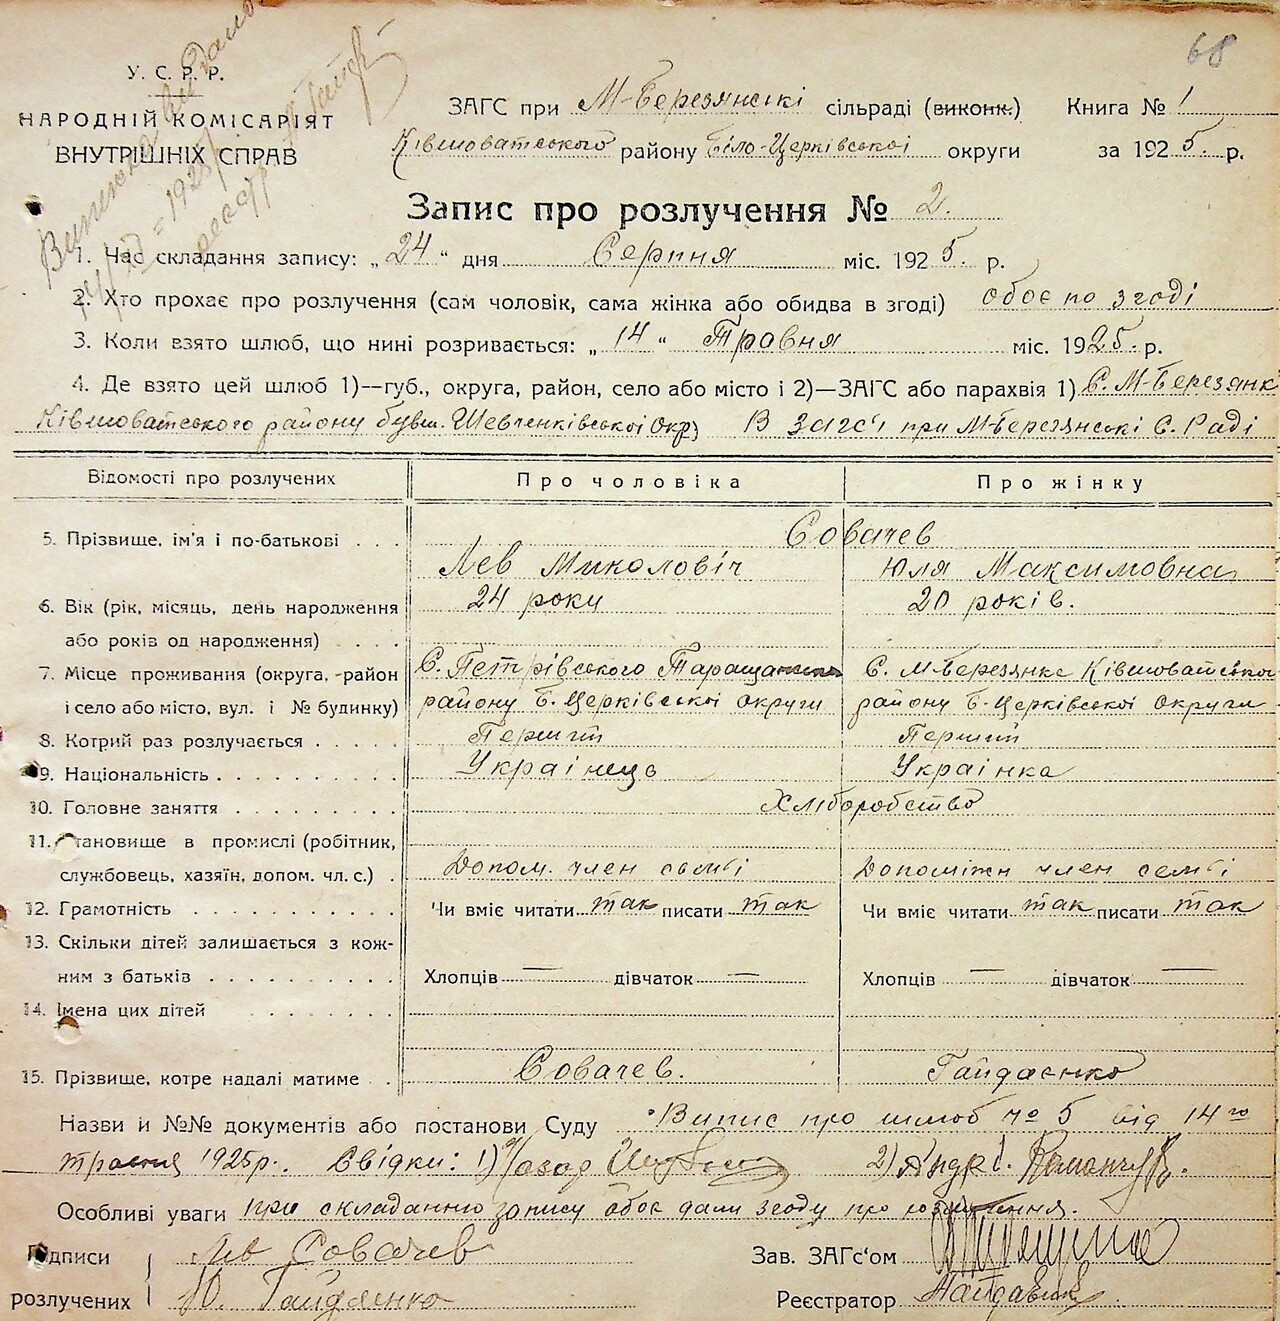 68
У. С. Р. Р.
НАРОДНІЙ КОМІСАРІЯТ
ВНУТРІШНІХ СПРАВ
ЗАГС при М-Березянські сільраді (виконк.) Книга № 1
Ківшоватського району Біло-Церківської округи за 1925. р.
Запис про розлучення № 2.
1. Час складання запису: „24“ дня Серпня міс. 1925. р.
2. Хто прохає про розлучення (сам чоловік, сама жінка або обидва в згоді) обоє по згоді
3. Коли взято шлюб, що нині розривається: „14“ Травня міс. 1925. р.
4. Де взято цей шлюб 1)—губ., округа, район, село або місто і 2)—ЗАГС або парахвія 1) С. М-Березянк
Ківшоватського району бувш. Шевченківської Окр) В Загс'і при М-Березянські С. Раді
Відомості про розлучених Про чоловіка Про жінку
5. Прізвище, ім'я і по-батькові Совачев
Лев Миколовіч Юля Максимовна
6. Вік (рік, місяць, день народження 24 роки 20 років.
або років од народження)
7. Місце проживання (округа, район С. Петрівського С. М-Березянке Ківшоватсько
і село або місто, вул. і № будинку) району Б. Церківської округи району Б-Церківської Округи
8. Котрий раз розлучається Перший Перший
9. Національність Українець Українка
10. Головне заняття Хліборобство
11. Становище в промислі (робітник,
службовець, хазяїн, допом. чл. с.) Допом. член семьі Допоміжн член семьі
12. Грамотність Чи вміє читати так писати так Чи вміє читати так писати так
13. Скільки дітей залишається з кож-
ним з батьків Хлопців — дівчаток — Хлопців — дівчаток —
14. Імена цих дітей
15. Прізвище, котре надалі матиме Совачев. Гайдаєнко
Назви й №№ документів або постанови Суду Випис про шлюб № 5 від 14го
травня 1925р. Свідки: 1) 2) Андрі.
Особливі уваги при складанню запису обоє дали згоду про розлучення.
Підписи Лев Совачев Зав. ЗАГс'ом
розлучених Ю. Гайдаенко Реєстратор